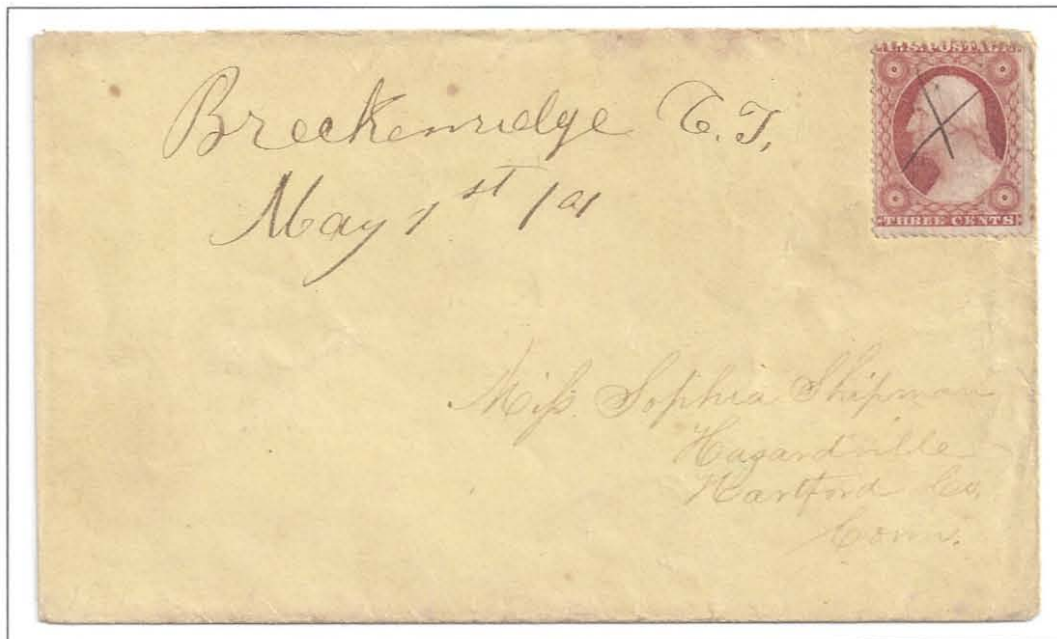 Breckenridge C.T,
May 1st /61
U.S. POSTAGE.
THREE CENTS
Miſs. Sophia Shipman
Hazardville
Hartford Co,
Conn.